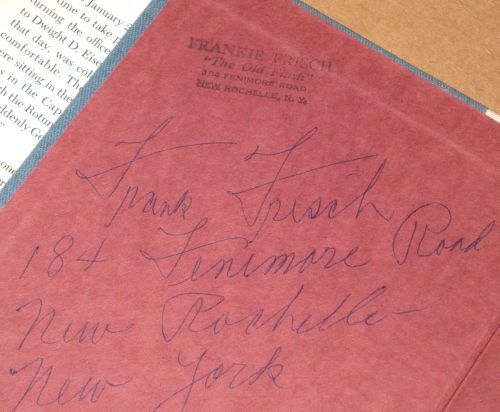 January 2
me to take
urning the office
to Dwight D. Eise
that day, was col
comfortable. The
ere sitting in the
s in the Cap
h the Rotun
ddenly Ge
one
FRANKIE FRISCH
"The Old Flash"
FENIMORE ROAD
NEW ROCHELLE, N. Y.
Frank Frisch
184 Fenimore Road
New Rochelle
New York